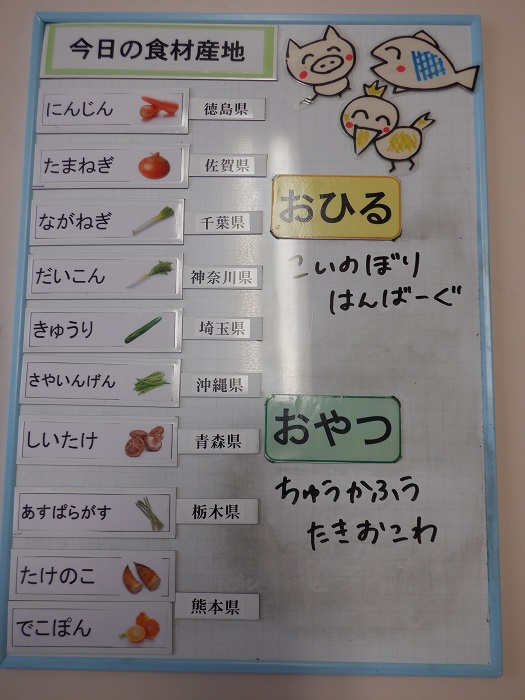 今日の食材産地
にんじん 徳島県
たまねぎ 佐賀県
ながねぎ 千葉県
だいこん 神奈川県
きゅうり 埼玉県
さやいんげん 沖縄県
しいたけ 青森県
あすぱらがす 栃木県
たけのこ
熊本県
でこぽん
おひる
こいのぼり
はんばーぐ
おやつ
ちゅうかふう
たきおこわ